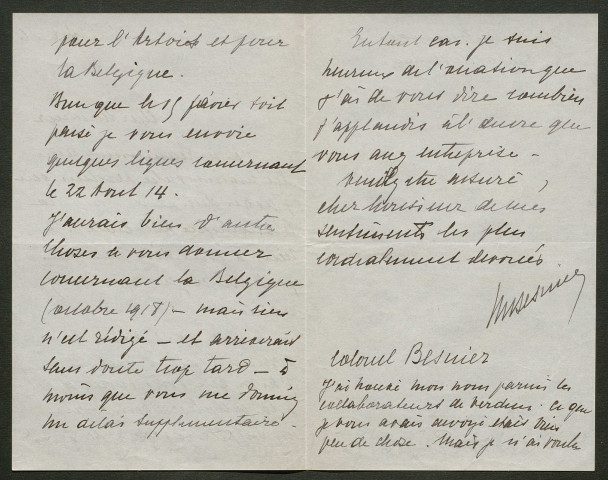 pour l'Artois et pour
la Belgique.
Bien que le 15 février soit
passé je vous envoie
quelques lignes concernant
le 22 Aout 14.
J'aurais bien d'autres
choses à vous donner
concernant la Belgique
(octobre 1918) - mais rien
n'est rédigé - et arriverait
sans doute trop tard - à
moins que vous me donniez
un délai supplémentaire.
En tout cas. je suis
heureux de l'occasion que
j'ai de vous dire combien
j'applaudis à l'œuvre que
vous avez entreprise -
Veuillez être assuré,
cher Monsieur de mes
sentiments les plus
cordialement dévoués
MBesnier
Colonel Besnier
J'ai trouvé mon nom parmi les
collaborateurs de Verdun. Ce que
je vous avais envoyé était bien
peu de chose. Mais je n'ai voulu